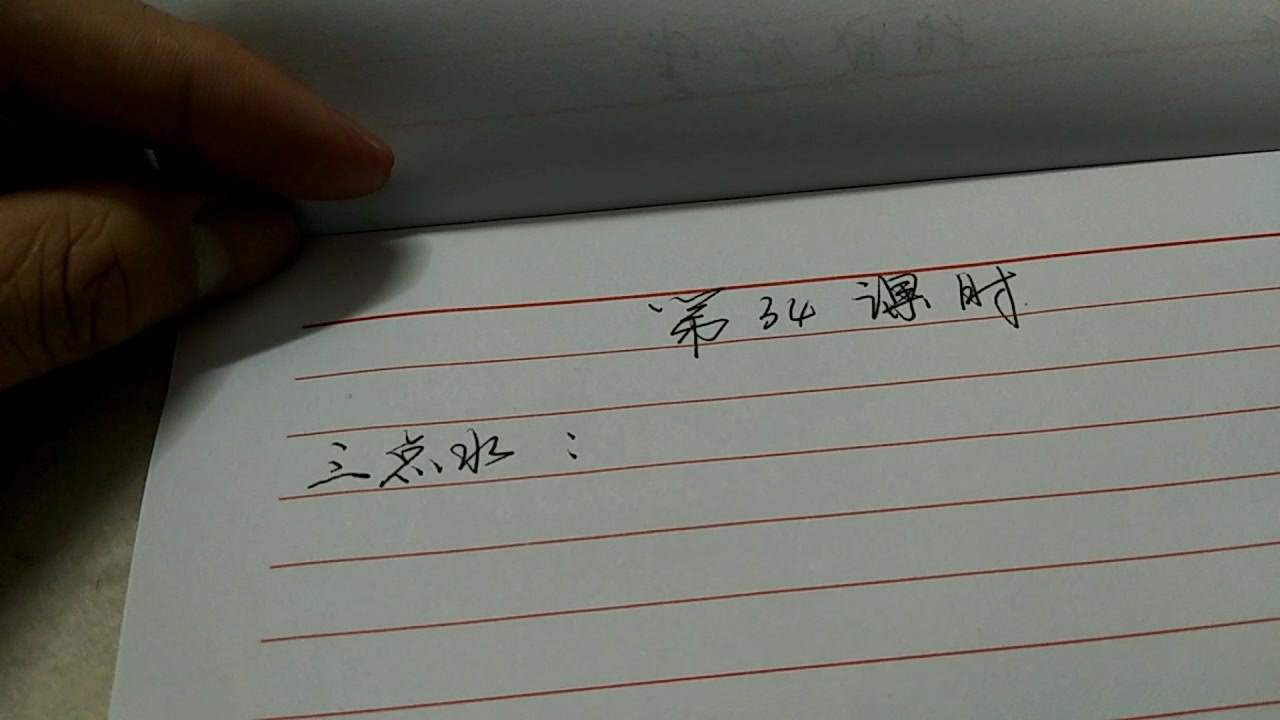 第34课时
三点水：